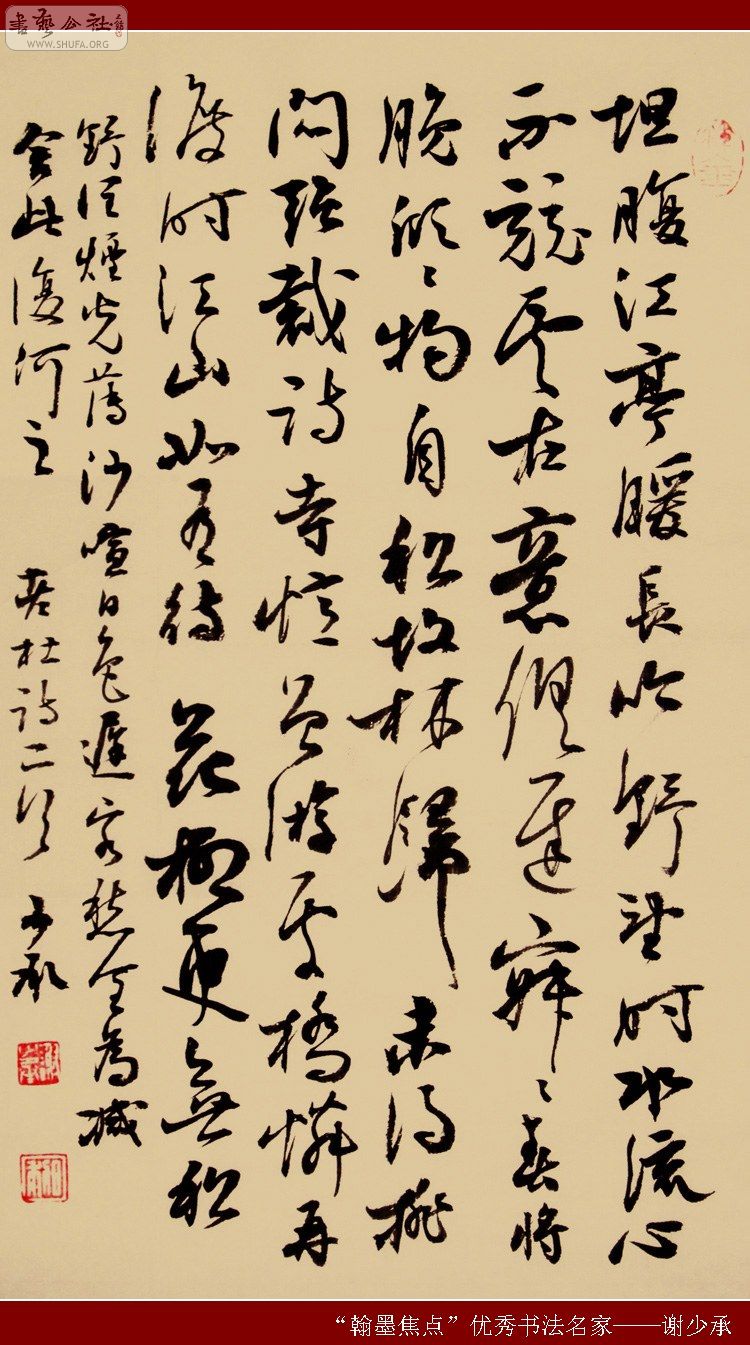 書藝公社
WWW.SHUFA.ORG
坦腹江亭暖長吟野望時水流心
不競雲在意俱遲寂〻春將
晚欣〻物自私故林歸未得排
悶強裁詩寺憶曾游處橋憐再
渡時江山如有待花柳更無私
野潤煙光薄沙暄日色遲客愁全為減
舍此復何之 杜詩二首 少承
“翰墨焦点”优秀书法名家——谢少承